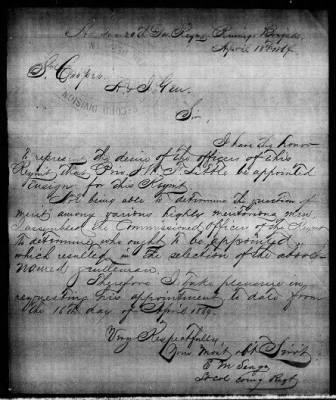 April 18th 1864
A & I Gen.
Sir,
I have the honor
to represent the desire of the officers of this
Regmt. that Priv. J. H. P. Little be appointed
Ensign for this Regmt.
Not being able to determine the question of
merit among various highly meritorious men
I assembled the Commissioned Officers of the Regmt
to determine who ought to be appointed,
which resulted in the selection of the above
named gentleman.
Therefore I take pleasure in
requesting his appointment to date from
the 16th day of April 1864.
Very Respectfully,
Your most obt Servt
E M
Lt Col comg Regt